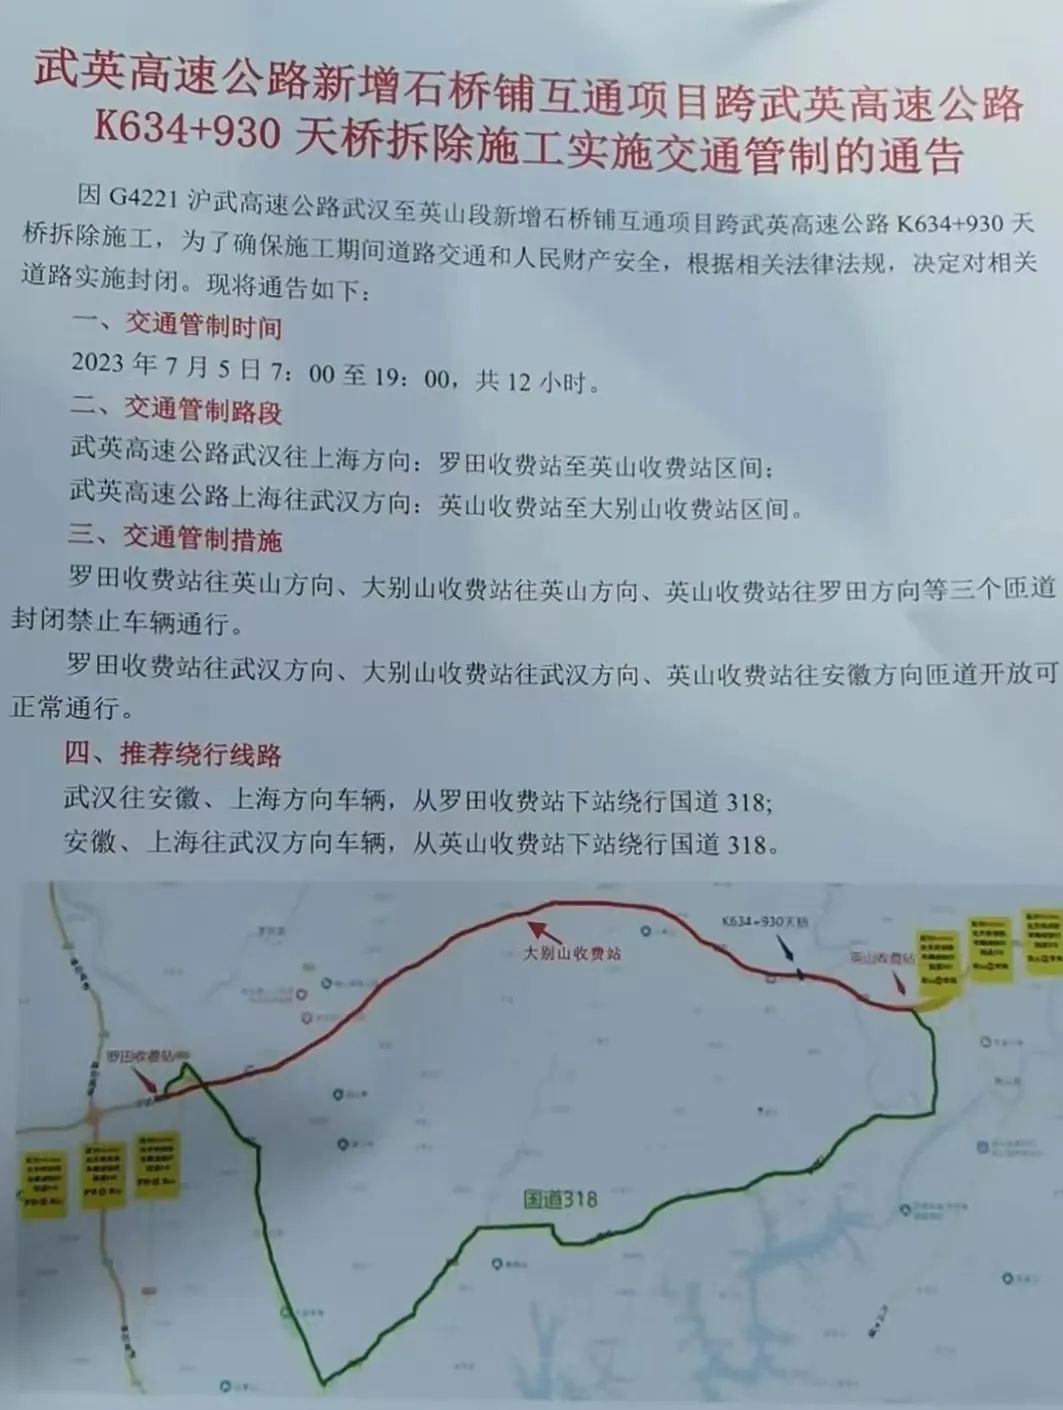 武英高速公路新增石桥铺互通项目跨武英高速公路
K634+930 天桥拆除施工实施交通管制的通告
因 G4221 沪武高速公路武汉至英山段新增石桥铺互通项目跨武英高速公路 K634+930 天
桥拆除施工，为了确保施工期间道路交通和人民财产安全，根据相关法律法规，决定对相关
道路实施封闭。现将通告如下：
一、交通管制时间
2023 年 7 月 5 日 7：00 至 19：00，共 12 小时。
二、交通管制路段
武英高速公路武汉往上海方向：罗田收费站至英山收费站区间；
武英高速公路上海往武汉方向：英山收费站至大别山收费站区间。
三、交通管制措施
罗田收费站往英山方向、大别山收费站往英山方向、英山收费站往罗田方向等三个匝道
封闭禁止车辆通行。
罗田收费站往武汉方向、大别山收费站往武汉方向、英山收费站往安徽方向匝道开放可
正常通行。
四、推荐绕行线路
武汉往安徽、上海方向车辆，从罗田收费站下站绕行国道 318;
安徽、上海往武汉方向车辆，从英山收费站下站绕行国道 318。
K634+930天桥
大别山收费站
英山收费站
罗田收费站
国道318